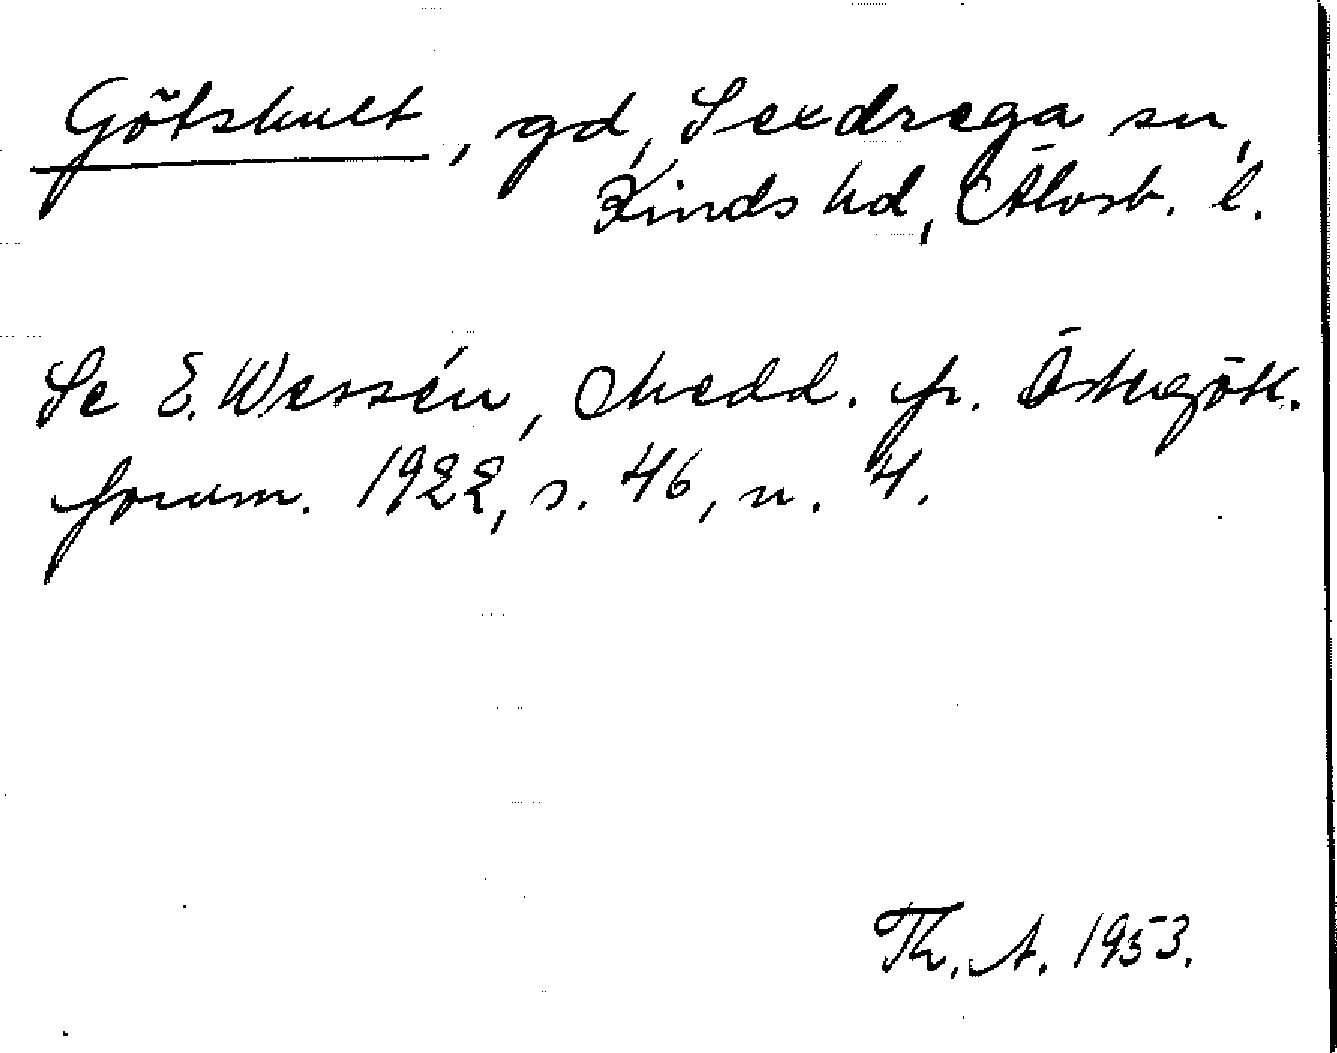 Götskult, gd, Sexdrega sn,
Kinds hd, Älvsb. l.
Se E. Wessén, Medd. fr. Östergötl.
fornm. 1922, s. 46, n. 4.
Th. A. 1953.